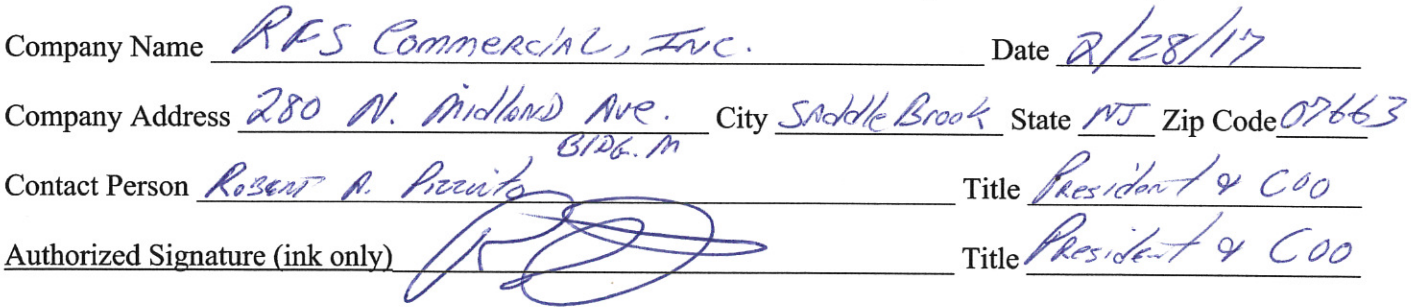 Company Name RFS Commercial, Inc. Date 2/28/17
Company Address 280 N. Midland Ave. City Saddle Brook State NJ Zip Code 07663
BlDG. M
Contact Person Robert A. Pizzuto Title President & COO
Authorized Signature (ink only) Title President & COO